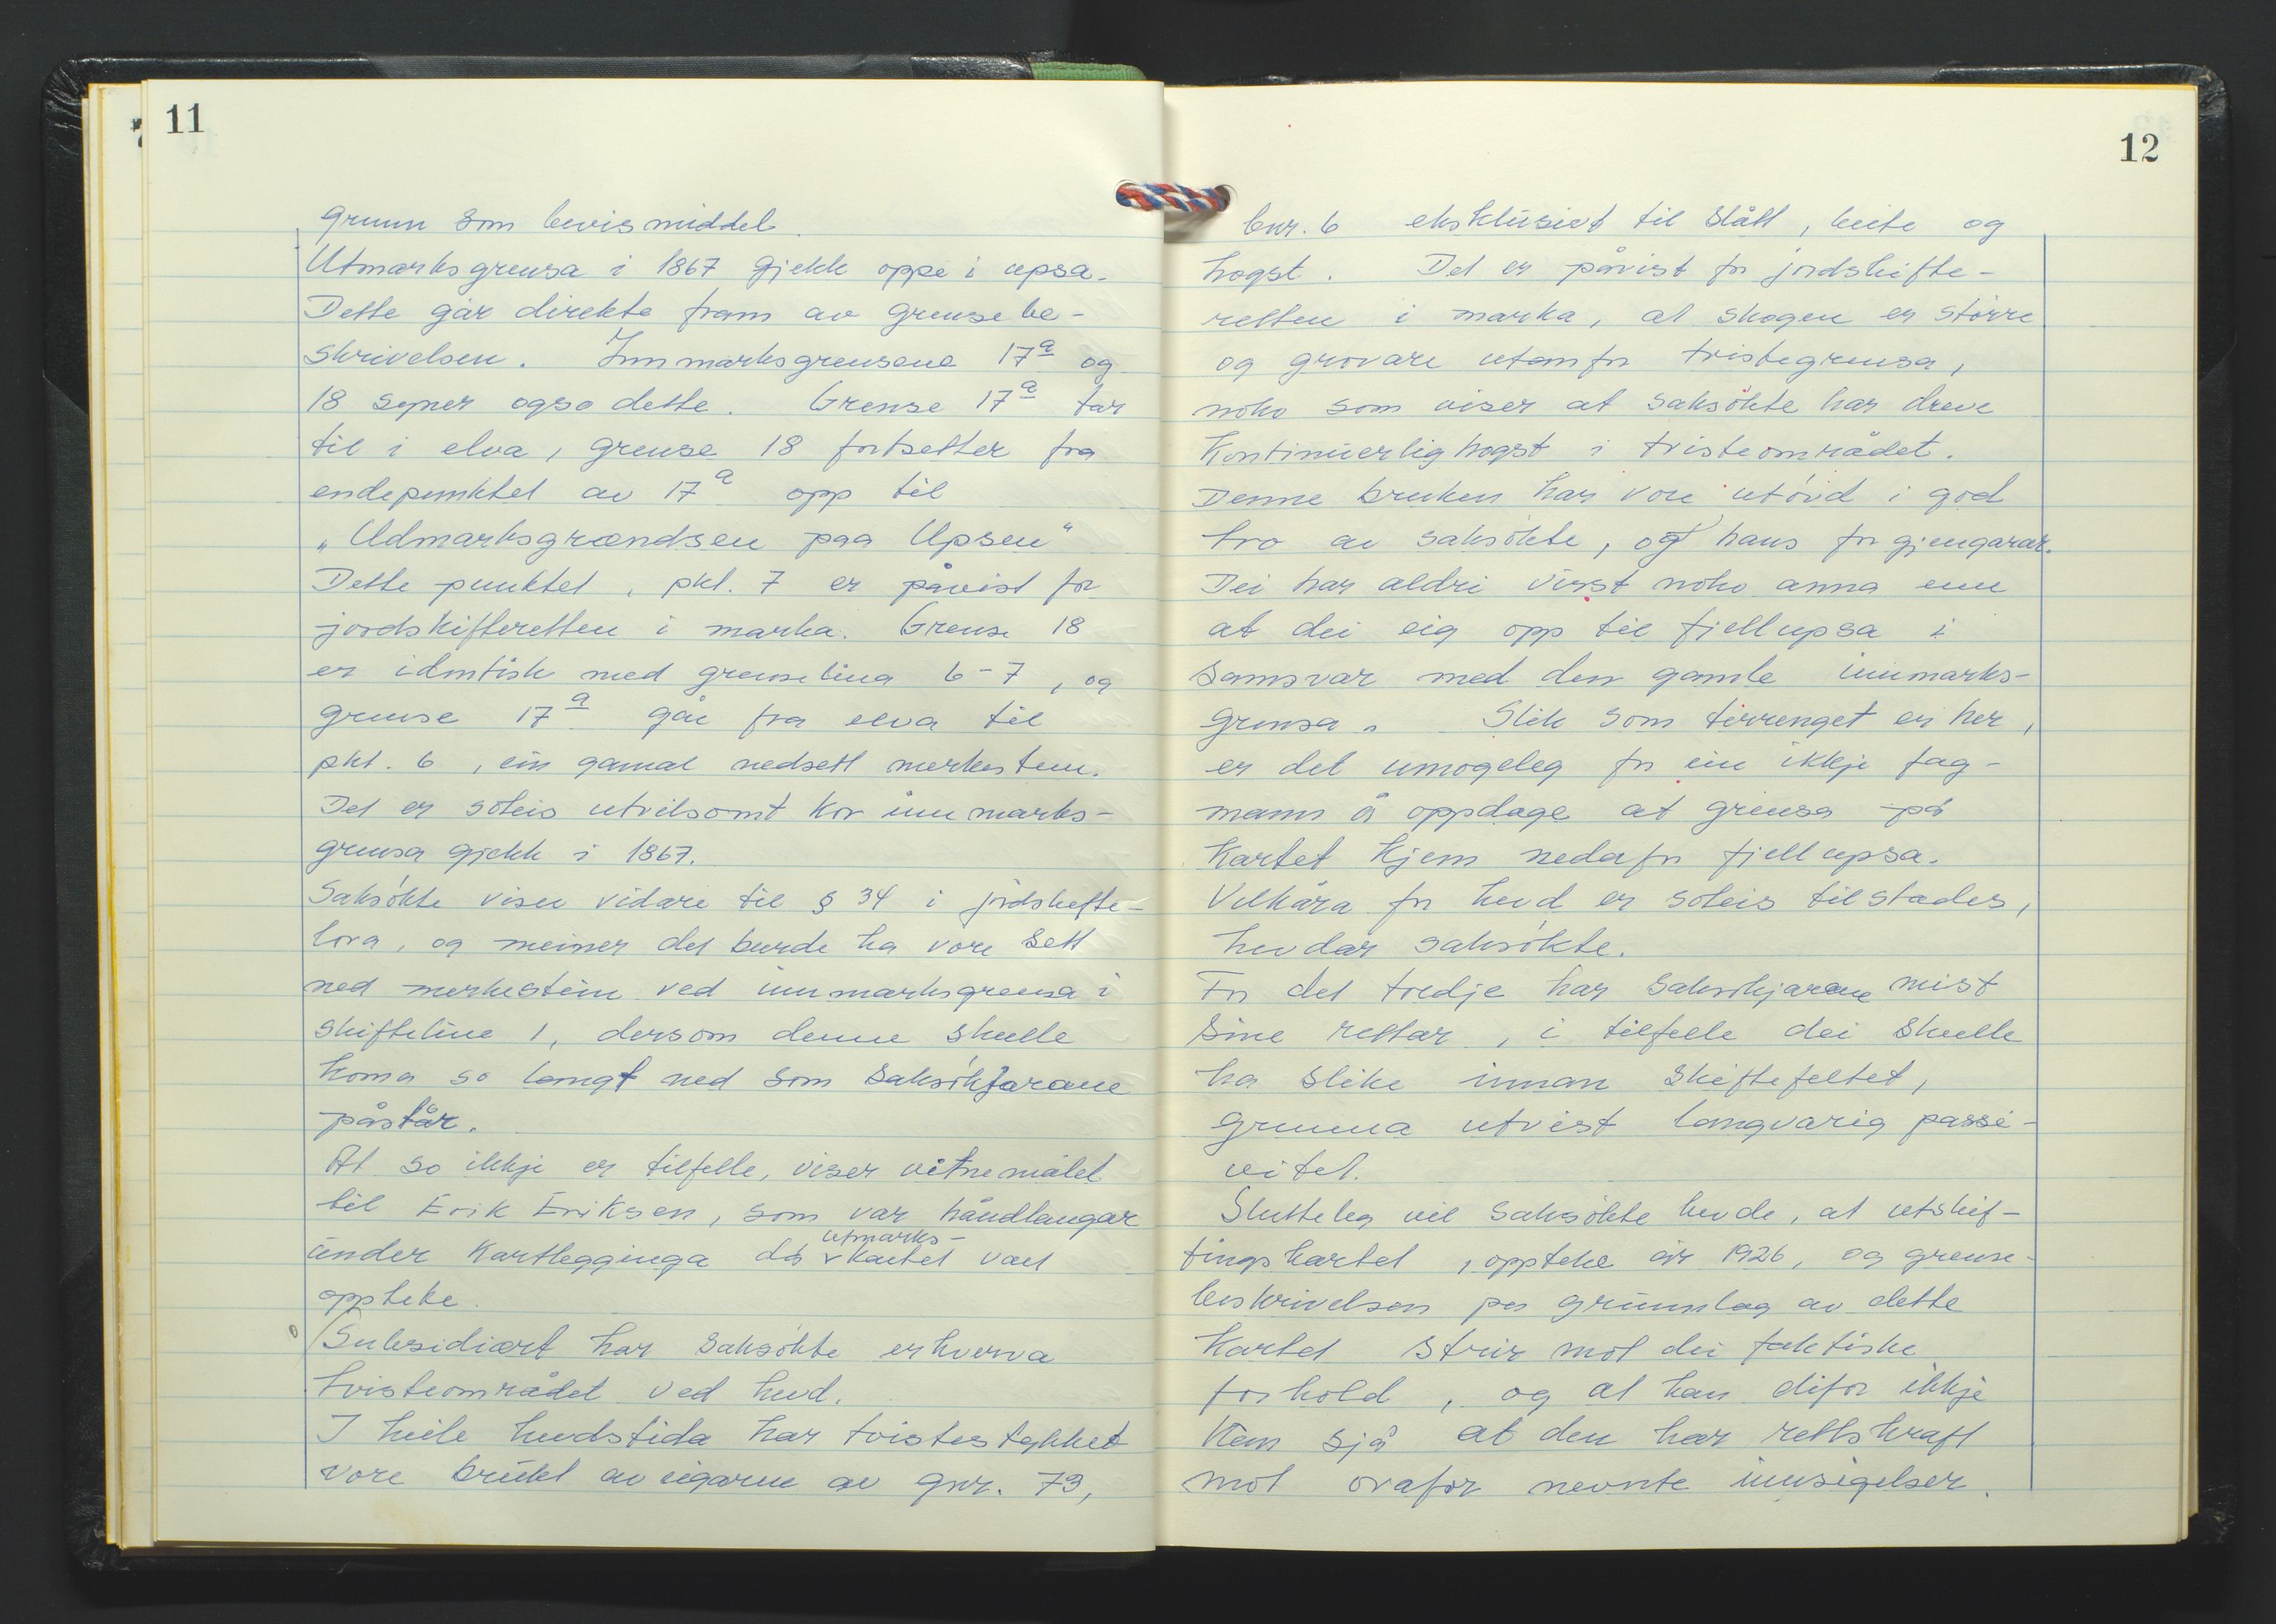 11
grunn som bevismiddel.
Utmarksgrensa i 1867 gjekk oppe i upsa.
Dette går direkte fram av grensebe-
skrivelsen. Innmarksgrensene 17a og
18 syner ogso dette. Grense 17a tar
til i elva, grense 18 fortsetter fra
endepunktet av 17a opp til
„Udmarksgrændsen paa Upsen"
Dette punktet, pkt. 7 er påvist for
jordskifteretten i marka. Grense 18
er identisk med grenselina 6-7, og
grense 17a går fra elva til
pkt. 6, ein gamal nedsett merkestein.
Det er soleis utvilsomt kor innmarks-
grensa gjekk i 1867.
Saksökte viser vidare til § 34 i jordskifte-
lova, og meiner det burde ha vore sett
ned merkestein ved innmarksgrensa i
skifteline 1, dersom denne skulle
koma so langt ned som saksökjarane
påstår.
At so ikkje er tilfelle, viser vitnemålet
til Erik Eriksen, som var håndlangar
under kartlegginga då utmarks-
kartet vart
oppteke.
Subsidiært har saksökte erhverva
tvisteområdet ved hevd.
I heile hevdstida har tvistestykket
vore brukt av eigarne av gnr. 73,
12
bnr. 6 eksklusivt til slått, beite og
hogst. Det er påvist for jordskifte-
retten i marka, at skogen er större
og grovare utanfor tvistegrensa,
noko som viser at saksökte har dreve
kontinuerlig hogst i tvisteområdet.
Denne bruken har vore utövd i god
tro av saksökte, og hans forgjengarar.
Dei har aldri visst noko anna enn
at dei eig opp til fjellupsa i
samsvar med den gamle innmarks-
grensa. Slik som terrenget er her,
er det umogeleg for ein ikkje fag-
mann å oppdage at grensa på
kartet kjem nedafor fjellupsa.
Vilkåra for hevd er soleis tilstades,
hevdar saksökte.
For det tredje har saksökjarane mist
sine rettar, i tilfelle dei skulle
ha slike innan skiftefeltet,
grunna utvist langvarig passi-
vitet.
Slutteleg vil saksökte hevde, at utskif-
tingskartet, oppteke år 1926, og grense-
beskrivelsen på grunnlag av dette
kartet strir mot dei faktiske
forhold, og at han difor ikkje
kan sjå at den har rettskraft
mot ovafor nevnte innsigelser.